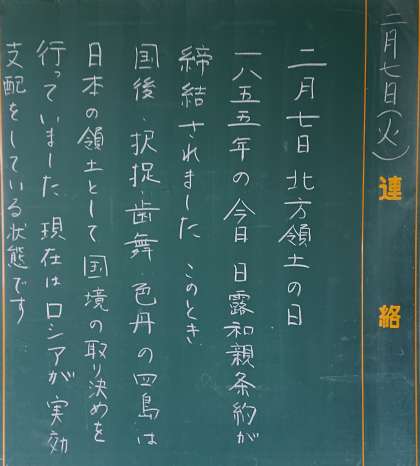 二月七日(火)
連絡
二月七日 北方領土の日
一八五五年の今日 日露和親条約が
締結されました このとき
国後・択捉・歯舞・色丹の四島は
日本の領土として国境の取り決めを
行っていました 現在はロシアが実効
支配をしている状態です